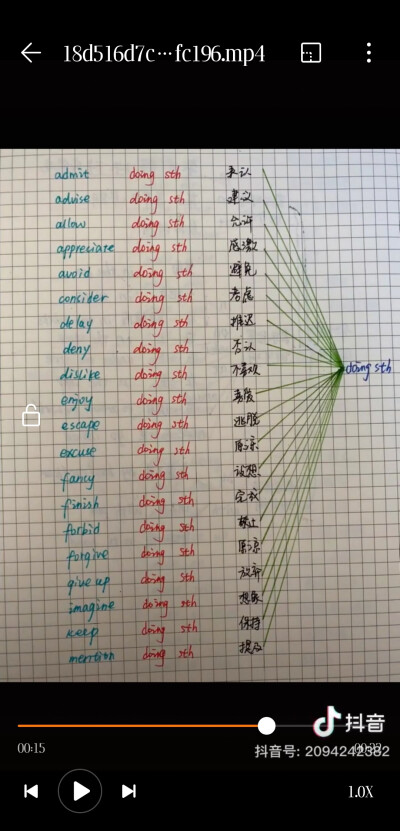 18d516d7c…fc196.mp4
admit doing sth 承认
advise doing sth 建议
allow doing sth 允许
appreciate doing sth 感激
avoid doing sth 避免
consider doing sth 考虑
delay doing sth 推迟
deny doing sth 否认
dislike doing sth 不喜欢
doing sth
enjoy doing sth 喜爱
escape doing sth 逃脱
excuse doing sth 原谅
fancy doing sth 设想
finish doing sth 完成
forbid doing sth 禁止
forgive doing sth 原谅
give up doing sth 放弃
imagine doing sth 想象
keep doing sth 保持
mention doing sth 提及
抖音
00:15
抖音号: 2094242382
1.0X